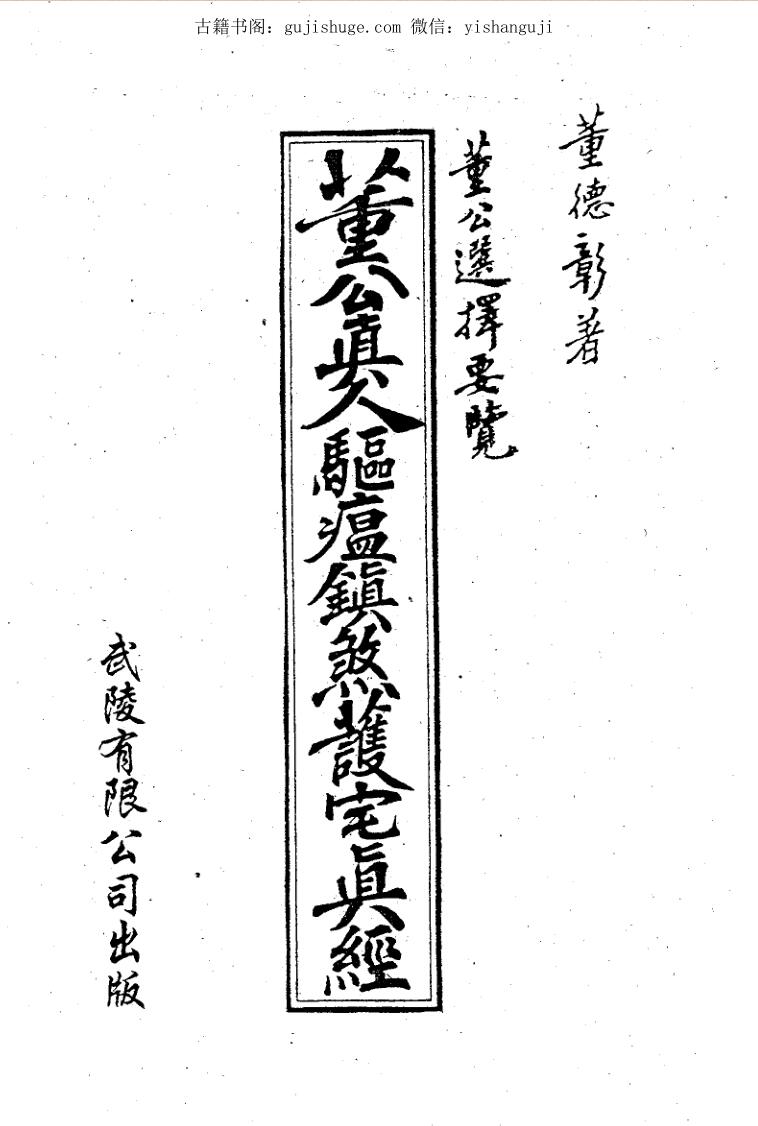 古籍书阁：gujishuge.com 微信：yishanguji
董德彰著
董公選擇要覽
董公真人驅瘟鎮煞護宅真經
武陵有限公司出版